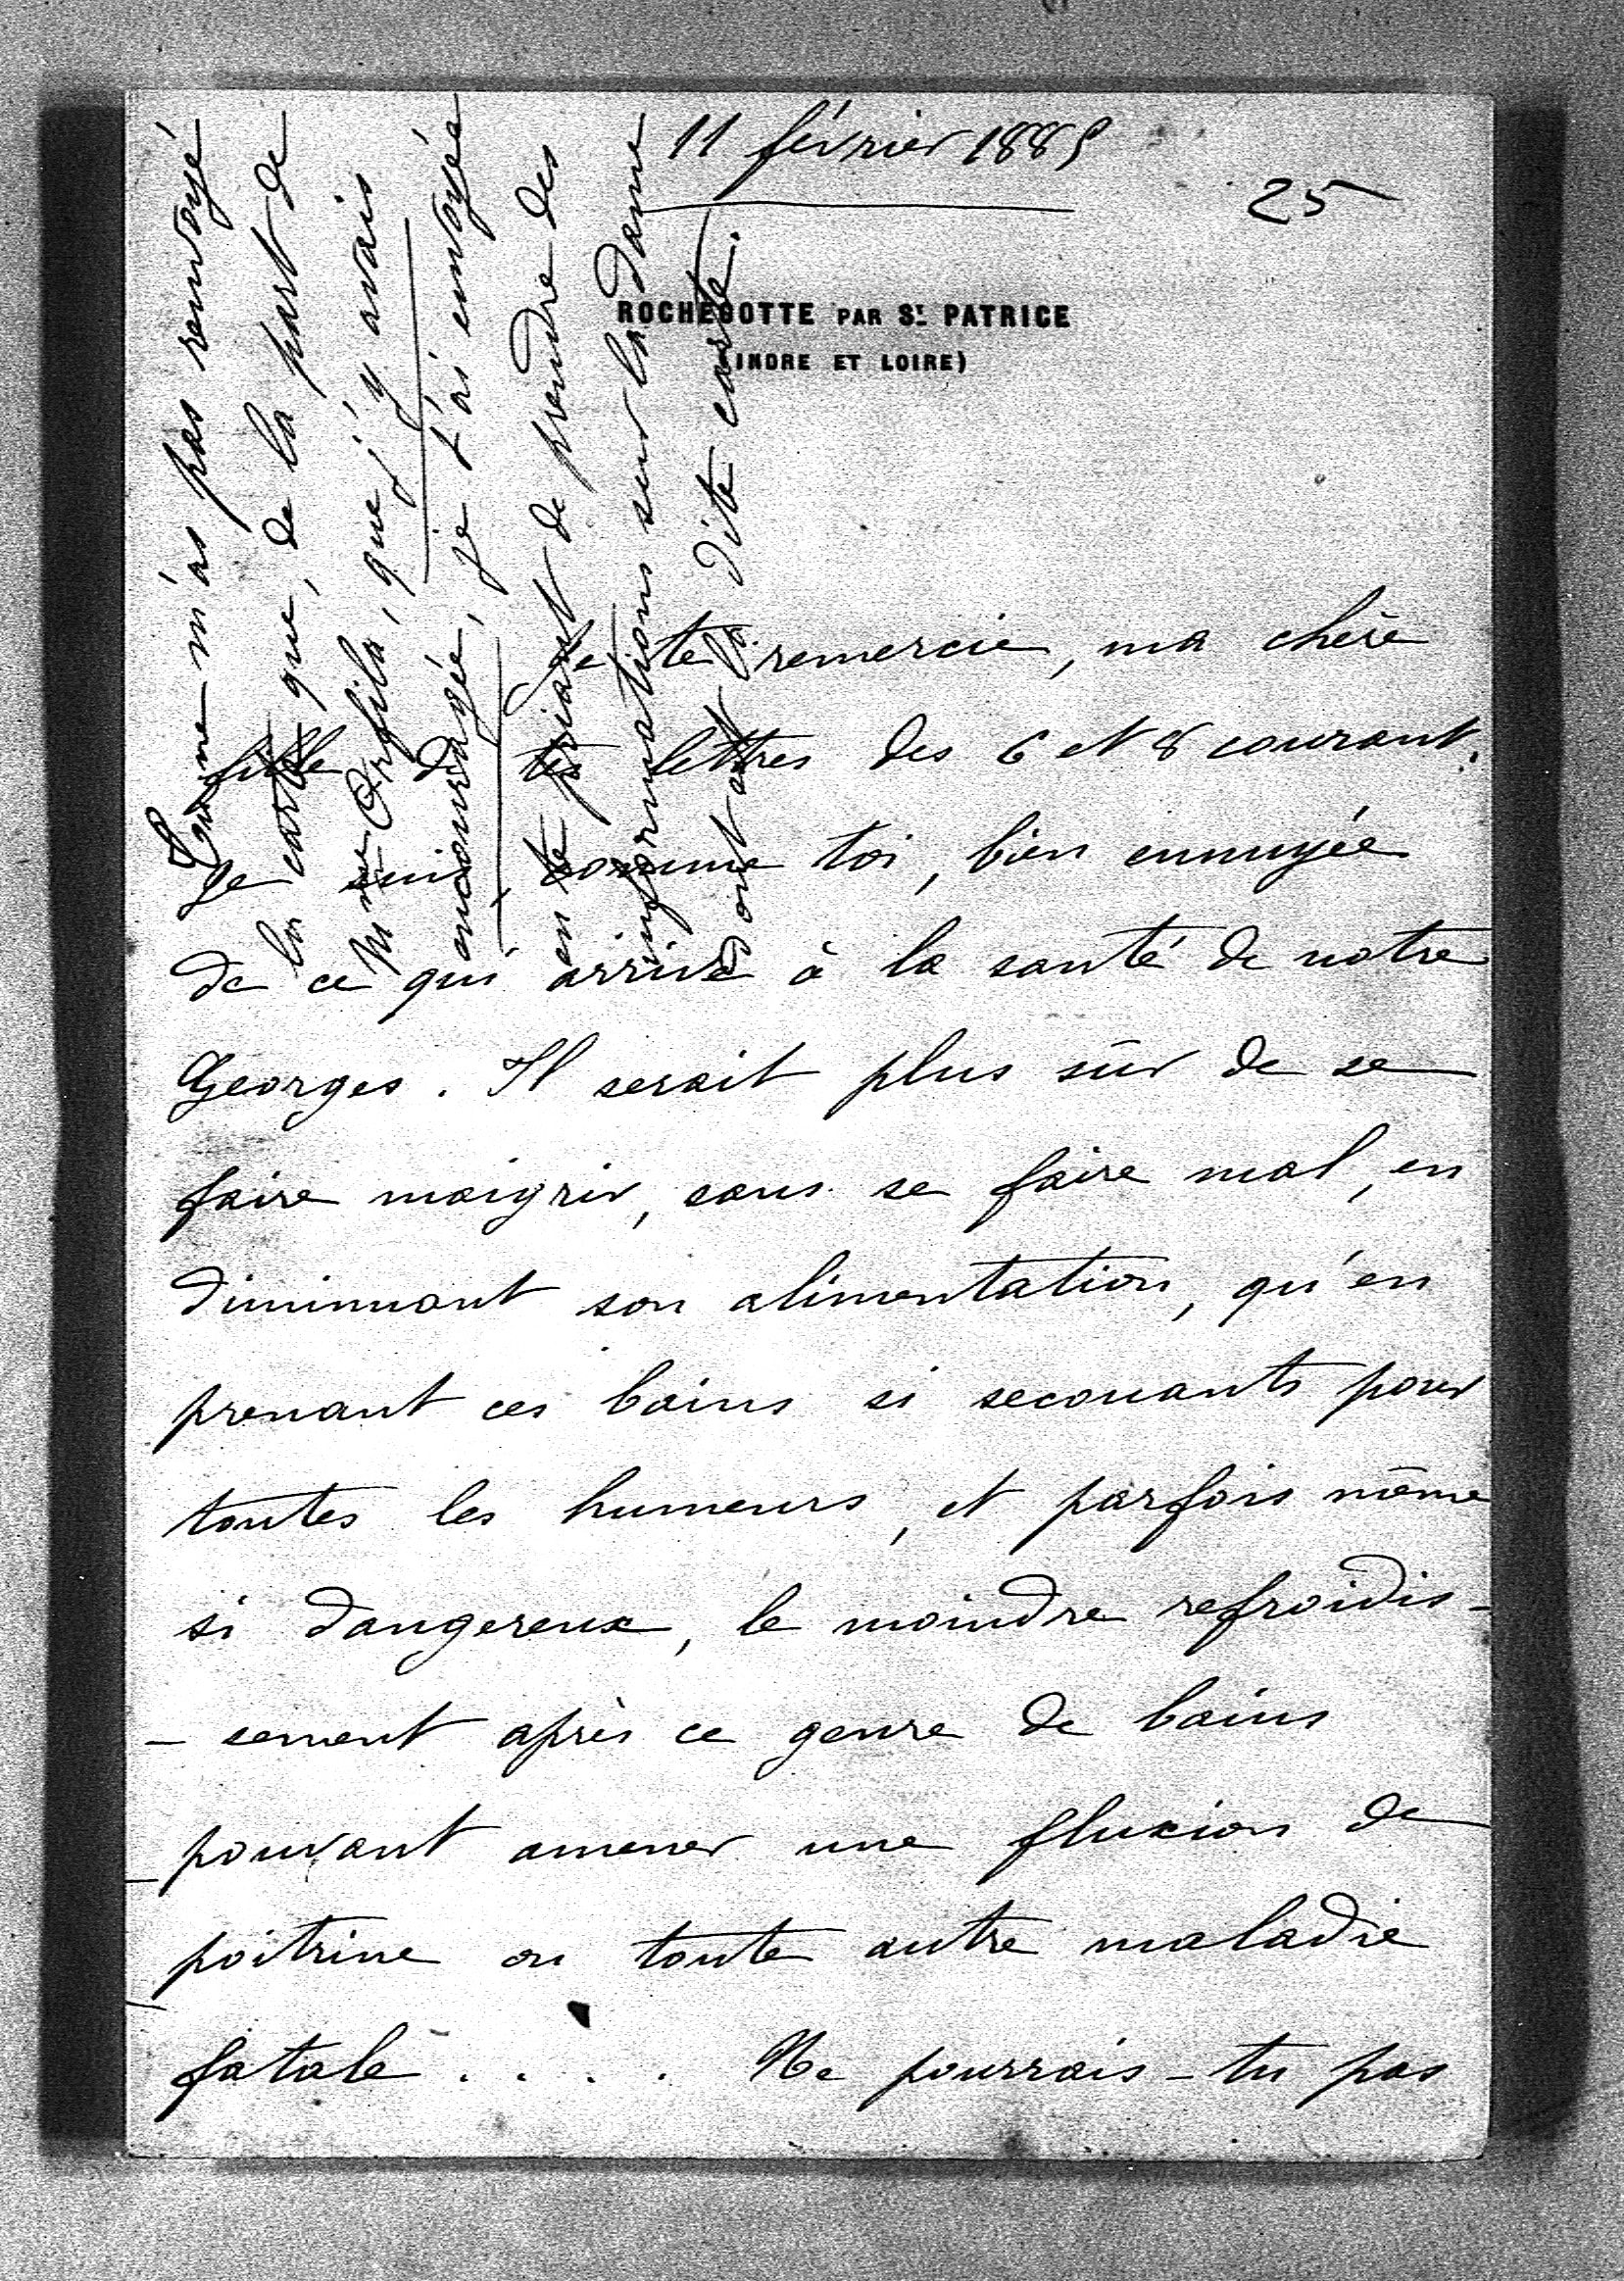 11 février 1889
25
ROCHECOTTE PAR St. PATRICE
(INDRE ET LOIRE)
Je te remercie, ma chère
fille, de tes lettres des 6 et 8 courant.
Je suis, comme toi, bien ennuyée
de ce qui arrive à la santé de notre
Georges. Il serait plus sûr de se
faire maigrir, sans se faire mal, en
diminuant son alimentation, qu'en
prenant ces bains si secouants pour
toutes les humeurs, et parfois même
si dangereux, le moindre refroidis-
- sement après ce genre de bains
pouvant amener une fluxion de
poitrine ou toute autre maladie
fatale . . . . Ne pourrais-tu pas
Tu ne m'as pas renvoyé
la carte que, de la part de
Mme Orfila, que j'y avais
encouragée, je t'ai envoyée
en te priant de prendre des
informations sur la dame
dont la dite carte.